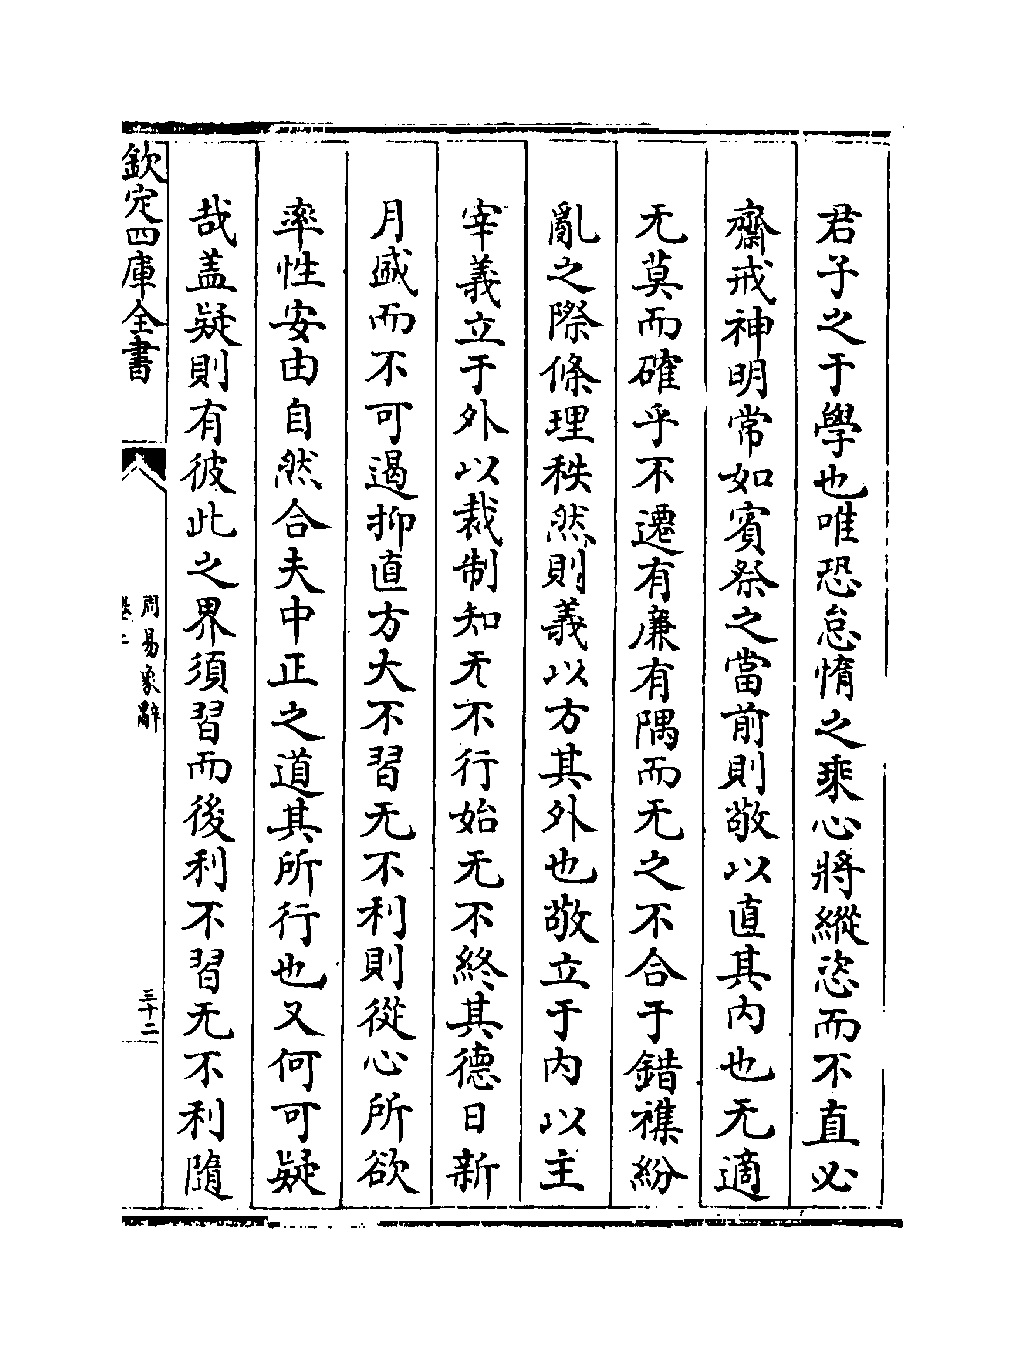 君子之于學也唯恐怠惰之乘心將縱恣而不直必
齋戒神明常如賓祭之當前則敬以直其内也无適
无莫而確乎不遷有廉有隅而无之不合于錯襍紛
亂之際條理秩然則義以方其外也敬立于内以主
宰義立于外以裁制知无不行始无不終其德日新
月盛而不可遏抑直方大不習无不利則從心所欲
率性安由自然合夫中正之道其所行也又何可疑
哉盖疑則有彼此之界須習而後利不習无不利隨
欽定四庫全書
周易象辭
卷二
三十二